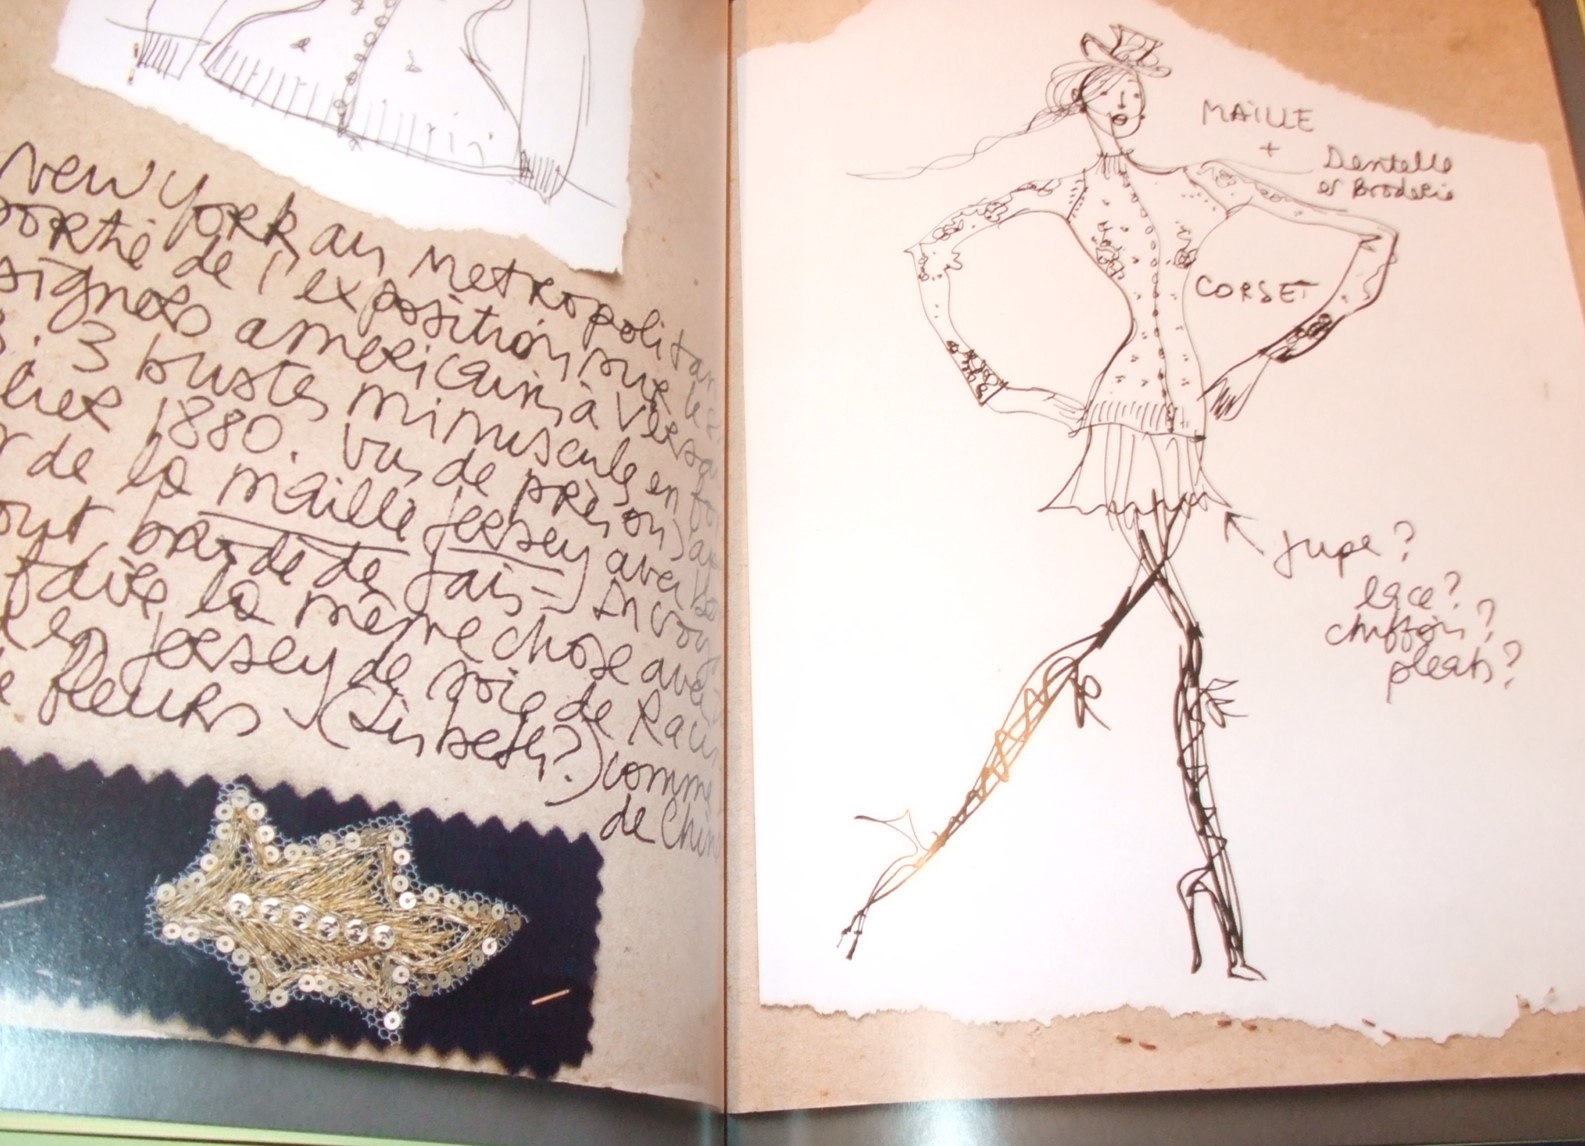 New York au Metropolitan
de l'exposition sur les
américains à
3 bustes minuscules en
1880. Vus de près on
de la maille jersey avec
brodé de jais -
faire la même chose avec
jersey de soie de
fleurs - (Lisbeth?) comme
de Chin
MAILLE
+
Dentelle
et Broderie
CORSET
Jupe?
lace?
chiffon?
pleats?